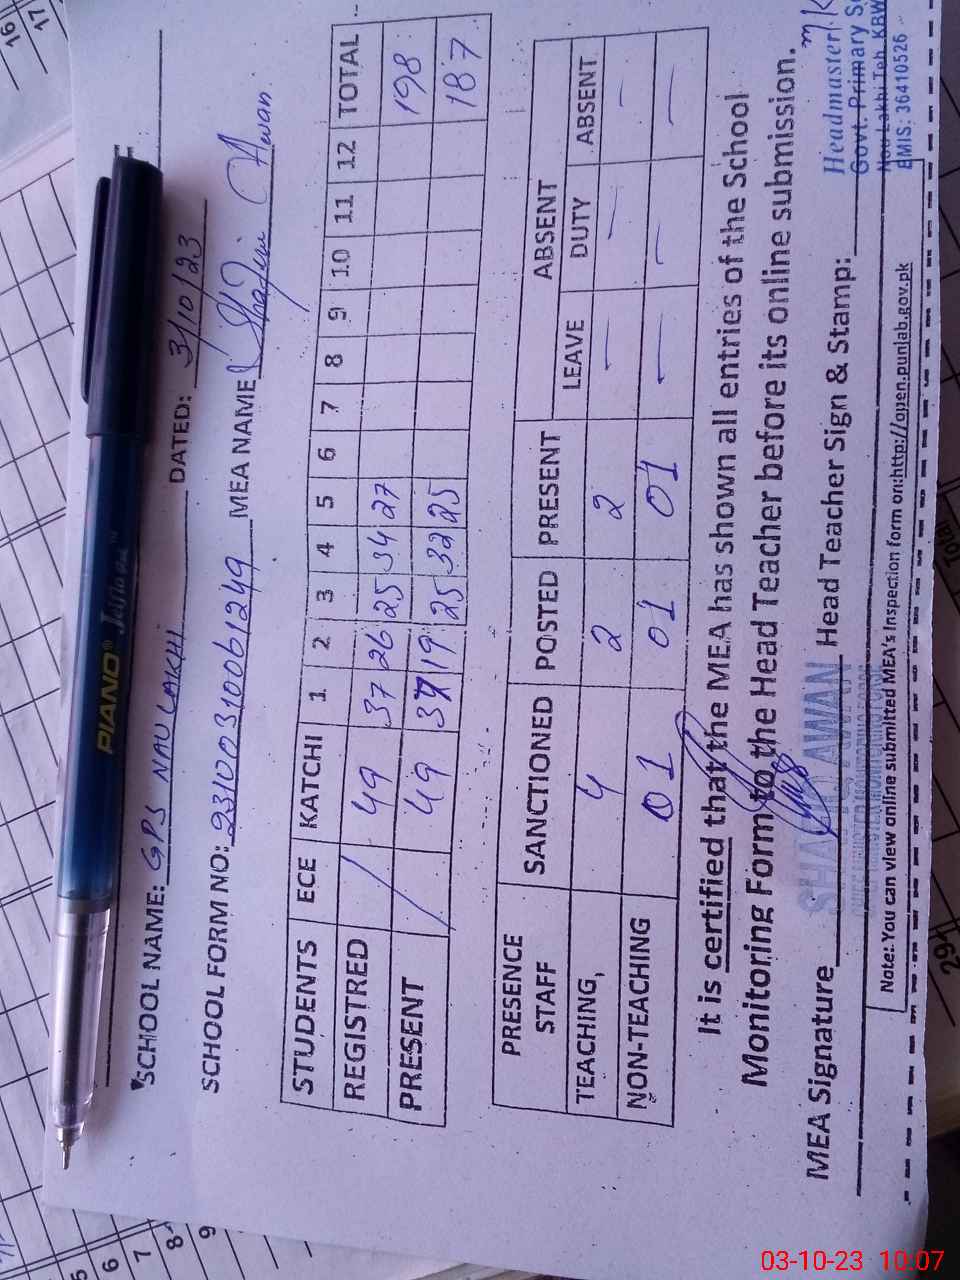 SCHOOL NAME: GPS NAULAKHI DATED: 3/10/23
SCHOOL FORM NO: 23100310061249 MEA NAME Shafiq Awan
STUDENTS ECE KATCHI 1 2 3 4 5 6 7 8 9 10 11 12 TOTAL
REGISTRED / 49 37 26 25 34 27 198
PRESENT / 49 37 19 25 32 25 187
PRESENCE STAFF SANCTIONED POSTED PRESENT ABSENT
LEAVE DUTY ABSENT
TEACHING, 4 2 2 — — —
NON-TEACHING 01 01 01 — — —
It is certified that the MEA has shown all entries of the School
Monitoring Form to the Head Teacher before its online submission.
MEA Signature Head Teacher Sign & Stamp:
SHAFIQ AWAN
CHIEF MINISTER MONITORING FORCE
Headmaster
Govt. Primary
Nau Lakhi Teh. KBW
EMIS: 36410526
Note:.You can view online submitted MEA's Inspection form on:http://open.punjab.gov.pk
PIANO
16
17
5
6
7
8
9
291
Total
03-10-23 10:07